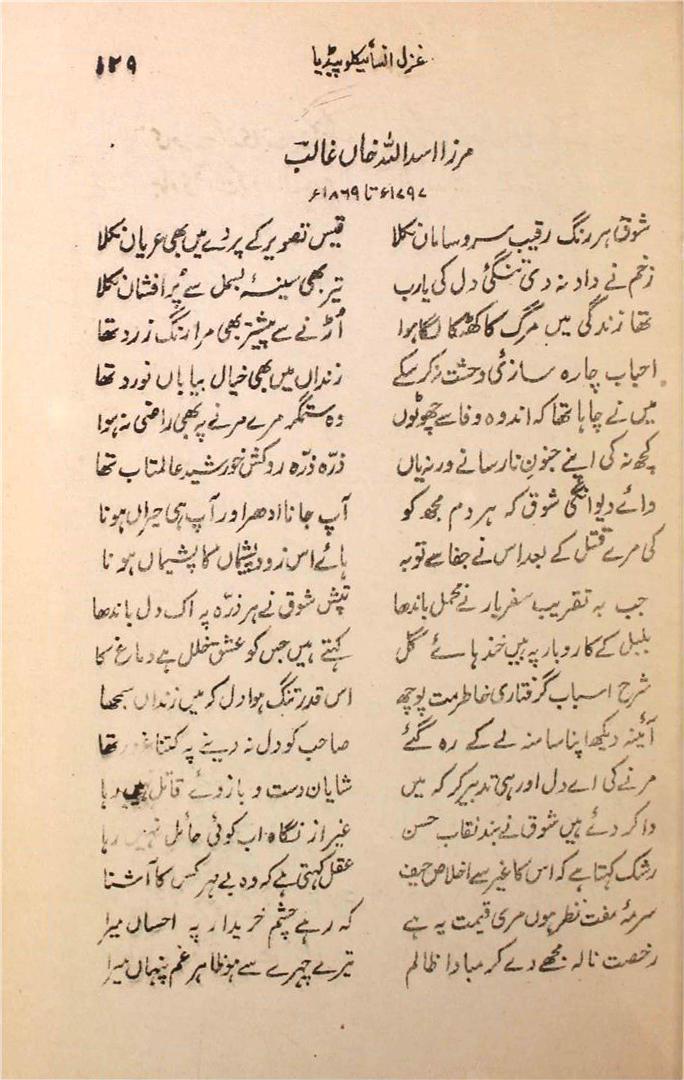 غزل انسائیکلوپیڈیا ۱۲۹
مرزا اسد اللہ خاں غالب
۱۷۹۷ء تا ۱۸۶۹ء
شوق ہر رنگ رقیب سروساماں نکلا قیس تصویر کے پردے میں بھی عریاں نکلا
زخم نے داد نہ دی تنگئ دل کی یارب تیر بھی سینۂ بسمل سے پُرافشاں نکلا
تھا زندگی میں مرگ کا کھٹکا لگا ہوا اُڑنے سے پیشتر بھی مرا رنگ زرد تھا
احباب چارہ سازئ وحشت نہ کرسکے زنداں میں بھی خیال بیاباں نورد تھا
میں نے چاہا تھا کہ اندوہ وفا سے چھوٹوں وہ ستمگر مرے مرنے پہ بھی راضی نہ ہوا
کچھ نہ کی اپنے جنونِ نارسا نے ورنہ یاں ذرّہ ذرّہ روکش خورشید عالمتاب تھا
وائے دیوانگی شوق کہ ہر دم مجھ کو آپ جانا ادھر اور آپ ہی حیراں ہونا
کی مرے قتل کے بعد اس نے جفا سے توبہ ہائے اس زود پشیماں کا پشیماں ہونا
جب بہ تقریب سفر یار نے محمل باندھا تپش شوق نے ہر ذرّہ پہ اک دل باندھا
بلبل کے کاروبار پہ ہیں خندہائے گل کہتے ہیں جس کو عشق خلل ہے دماغ کا
شرح اسباب گرفتاری خاطر مت پوچھ اس قدر تنگ ہوا دل کہ میں زنداں سمجھا
آئینہ دیکھ اپنا سا منہ لے کے رہ گئے صاحب کو دل نہ دینے پہ کتنا غرور تھا
مرنے کی اے دل اور ہی تدبیر کر کہ میں شایان دست و بازوئے قاتل نہیں رہا
وا کر دئے ہیں شوق نے بند نقاب حسن غیر از نگاہ اب کوئی حائل نہیں رہا
رشک کہتا ہے کہ اس کا غیر سے اخلاص حیف عقل کہتی ہے کہ وہ بے مہر کس کا آشنا
سرمۂ مفت نظر ہوں مری قیمت یہ ہے کہ رہے چشم خریدار پہ احساں میرا
رخصت نالہ مجھے دے کر مبادا ظالم تیرے چہرے سے ہو ظاہر غم پنہاں میرا